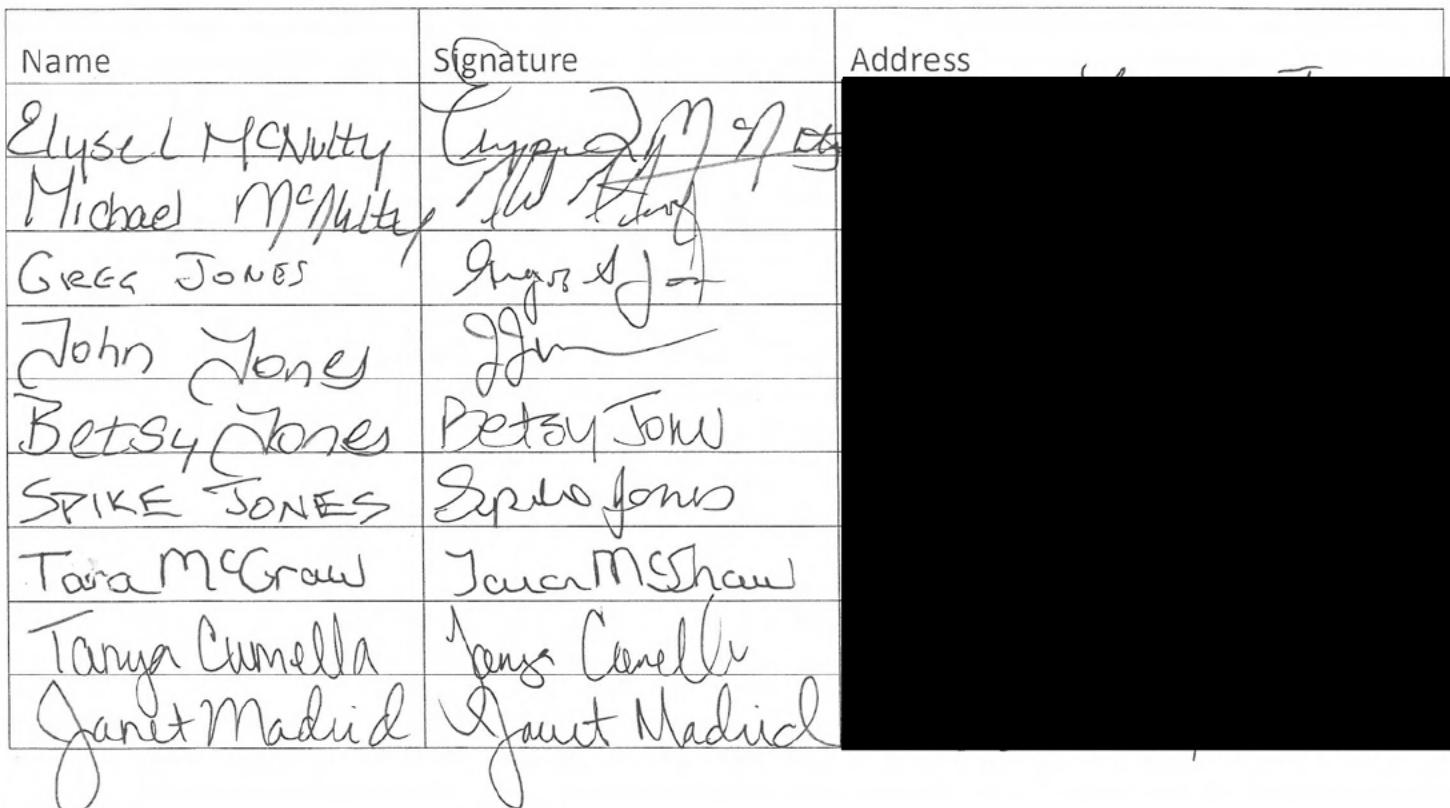 Name Signature Address
Elysel McNulty
Michael McNulty
GREG JONES
John Jones JJ
Betsy Jones Betsy Jones
SPIKE JONES Spike Jones
Tara McGraw Tara McGraw
Tanya Cumella Tanya Cumella
Janet Madrid Janet Madrid